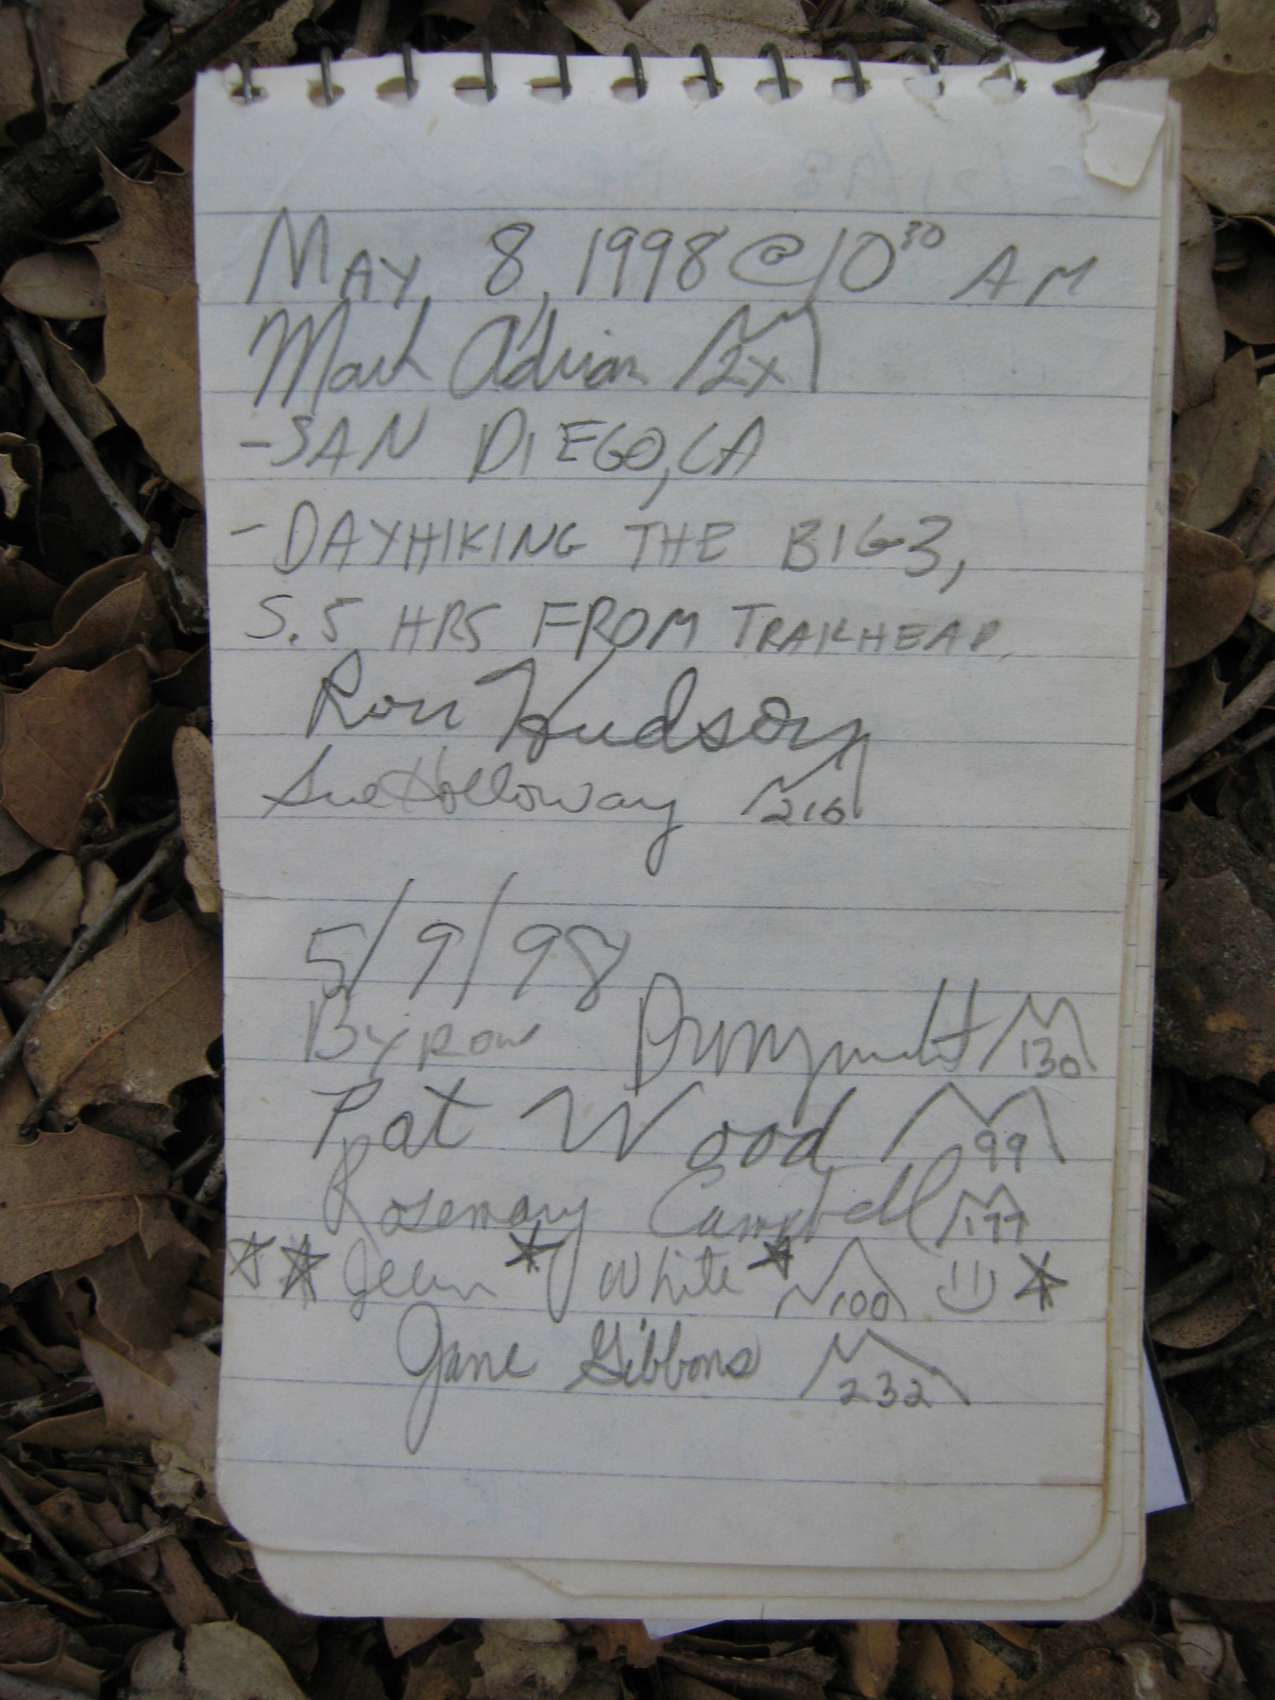 MAY, 8, 1998 @ 10³⁰ AM
Mark Adrian 2x
-SAN DIEGO, CA
-DAYHIKING THE BIG 3,
5.5 HRS FROM TRAILHEAD.
Ron Hudson
Sue Holloway 216
5/9/98
Byron 130
Pat Wood 99
Rosemary Campbell 177
White 100
Jane Gibbons 232